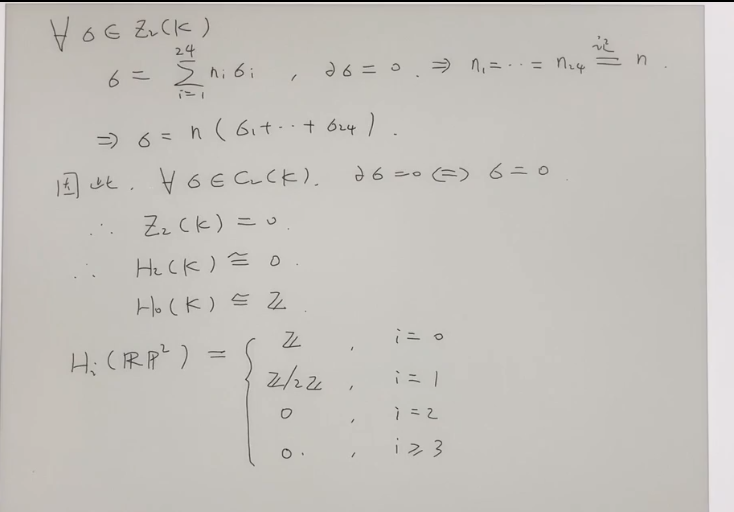 ∀ σ ∈ Z₂(K)
σ = ∑_{i=1}^{24} nᵢ σᵢ , ∂σ = 0 . ⇒ n₁ = ⋯ = n₂₄ \overset{记}{=} n .
⇒ σ = n ( σ₁ + ⋯ + σ₂₄ ) .
因此 . ∀ σ ∈ C₂(K) . ∂σ = 0 ⇔ σ = 0 .
∴ Z₂(K) = 0 .
∴ H₂(K) ≅ 0 .
H₀(K) ≅ ℤ .
Hᵢ(ℝP²) = { ℤ , i = 0
ℤ/2ℤ , i = 1
0 , i = 2
0 . , i ⩾ 3